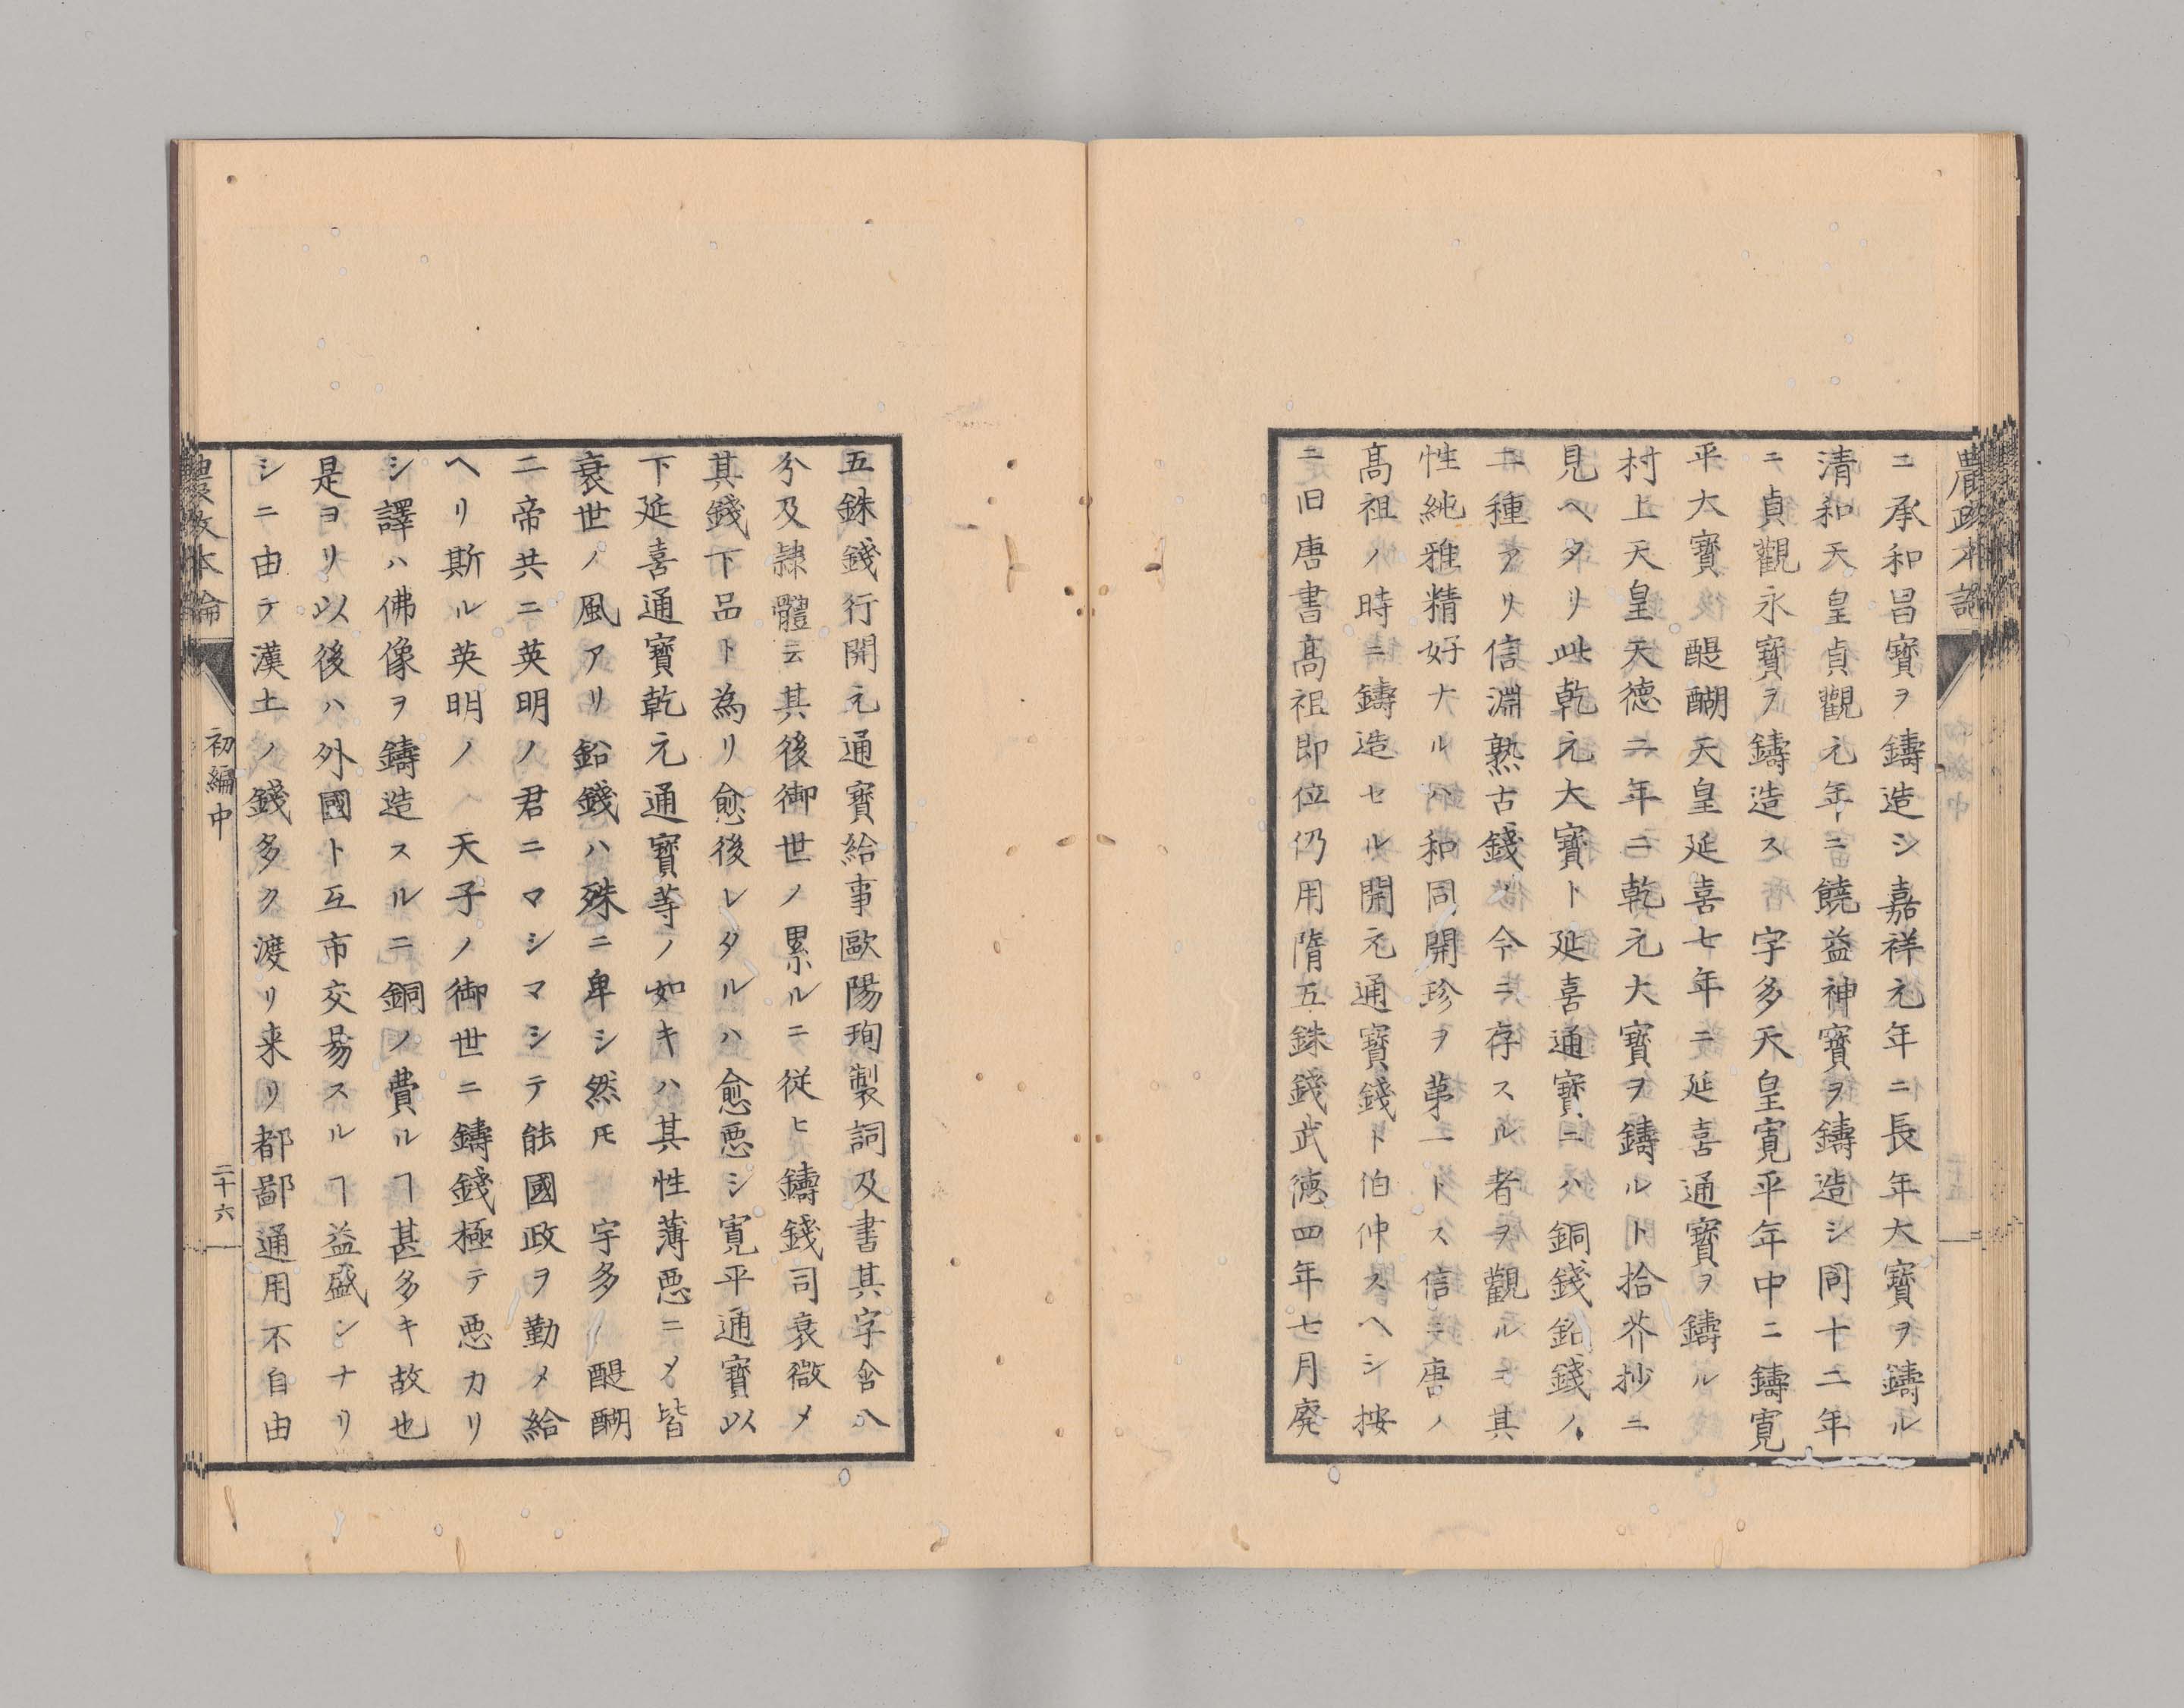 農政本論
ニ承和昌寶ヲ鑄造シ嘉祥元年ニ長年大寶ヲ鑄ル
清和天皇貞觀元年ニ饒益神寶ヲ鑄造シ同十二年
ニ貞觀永寶ヲ鑄造ス 宇多天皇寛平年中ニ鑄寛
平大寶 醍醐天皇延喜七年ニ延喜通寶ヲ鑄ル
村上天皇天徳二年ニ乾元大寶ヲ鑄ルト拾芥抄ニ
見ヘタリ此乾元大寶ト延喜通寶ニハ銅錢鉛錢ノ
二種アリ信淵熟古錢ノ今ニ存スル者ヲ觀ルニ其
性純雅精好ナルハ和同開珍ヲ苐一トス信ニ唐ノ
髙祖ノ時ニ鑄造セル開元通寶錢ト伯仲スヘシ按
ニ旧唐書髙祖即位仍用隋五銖錢武徳四年七月廃
五銖錢行開元通寶給事歐陽珣製詞及書其字含八
分及隷體云其後御世ノ累ルニ従ヒ鑄錢司衰微メ
其錢下品ト為リ愈後レタルハ愈悪シ寛平通寶以
下延喜通寶乾元通寶等ノ如キハ其性薄悪ニメ皆
衰世ノ風アリ鉛錢ハ殊ニ卑シ然𪜈 宇多 醍醐
二帝共ニ英明ノ君ニマシマシテ能國政ヲ勤メ給
ヘリ斯ル英明ノ 天子ノ御世ニ鑄錢極テ悪カリ
シ譯ハ佛像ヲ鑄造スルニ銅ノ費ルヿ甚多キ故也
是ヨリ以後ハ外國ト互市交易スルヿ益盛ンナリ
シニ由テ漢土ノ錢多ク渡リ来リ都鄙通用不自由
農政本論
初編中
二十六